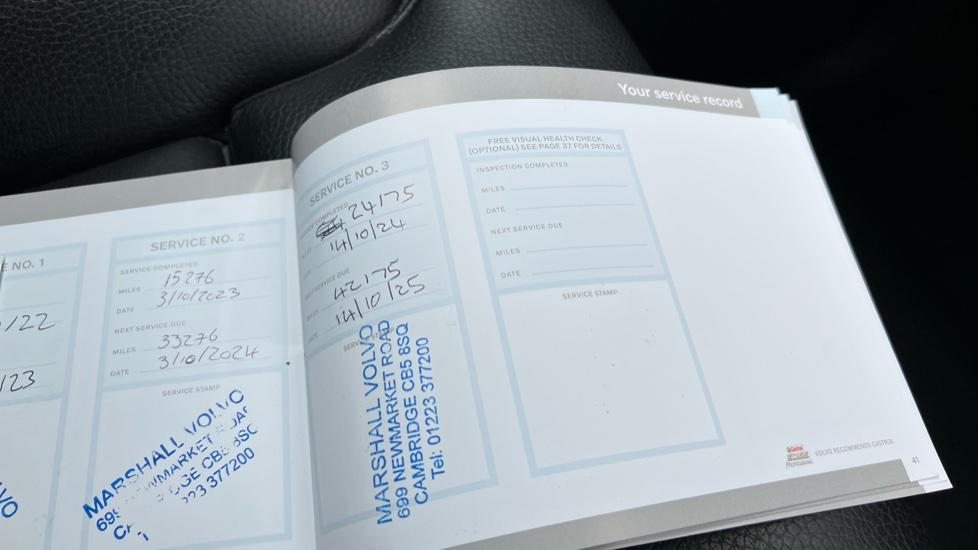 Your service record
E NO. 1
/22
/23
VO
SERVICE NO. 2
SERVICE COMPLETED
MILES 15276
DATE 3/10/2023
NEXT SERVICE DUE
MILES 33276
DATE 3/10/2024
SERVICE STAMP
MARSHALL VOLVO
699 NEWMARKET ROAD
CB5 8SQ
223 377200
SERVICE NO. 3
COMPLETED
24175
14/10/24
SERVICE DUE
42175
14/10/25
SERVICE STAMP
MARSHALL VOLVO
699 NEWMARKET ROAD
CAMBRIDGE CB5 8SQ
Tel: 01223 377200
FREE VISUAL HEALTH CHECK
(OPTIONAL) SEE PAGE 37 FOR DETAILS
INSPECTION COMPLETED
MILES
DATE
NEXT SERVICE DUE
MILES
DATE
SERVICE STAMP
Castrol
EDGE
Professional
VOLVO RECOMMENDS CASTROL
41